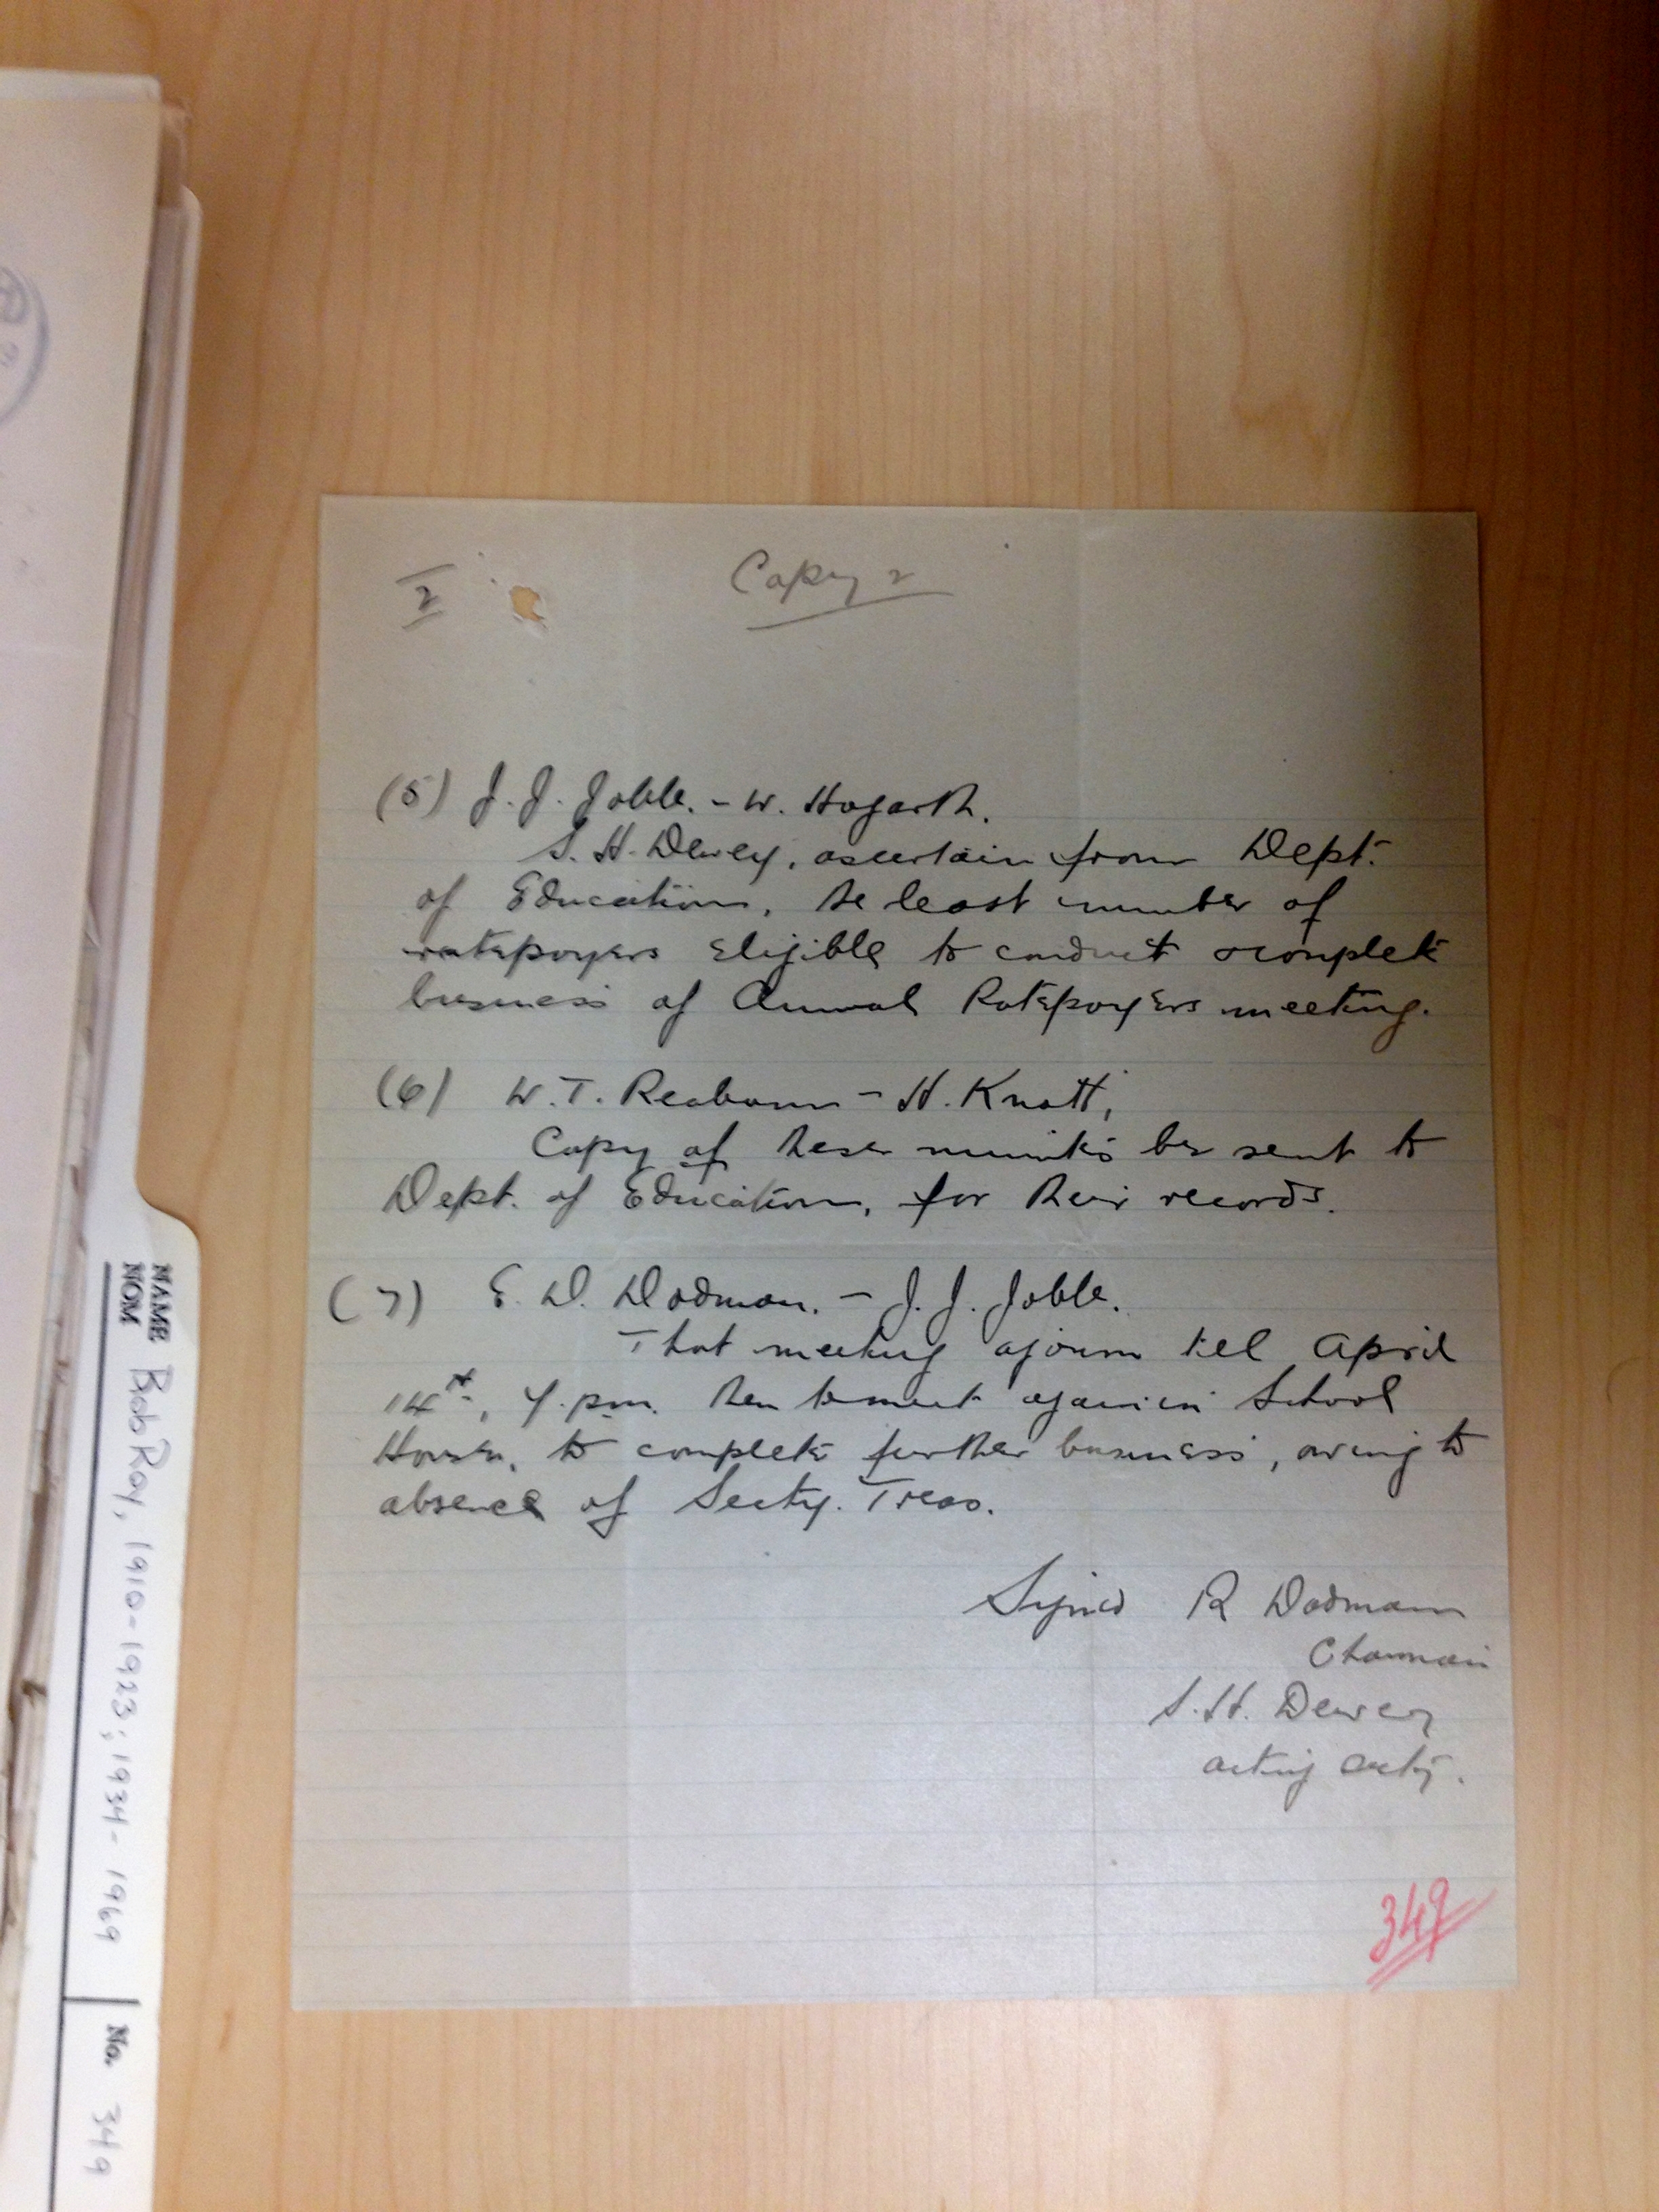 2
Copy 2
(5) J. J. Joble. - W. Hogarth.
S. H. Dewey, ascertain from Dept.
of Education, the least number of
ratepayers Eligible to conduct & complete
business of Annual Ratepayers meeting.
(6) W. T. - H. Knott,
Copy of these minutes be sent to
Dept. of Education, for their records.
(7) E. D. Dodman. - J. J. Joble.
That meeting ajourn till April
14th, pm. then to meet again in School
House, to complete further business, owing to
absence of Secty. Treas.
Signed R Dodman
Chairman
S. H. Dewey
acting secty.
349
NAME
NOM
Bob Roy, 1910-1923; 1934-1969
No. 349